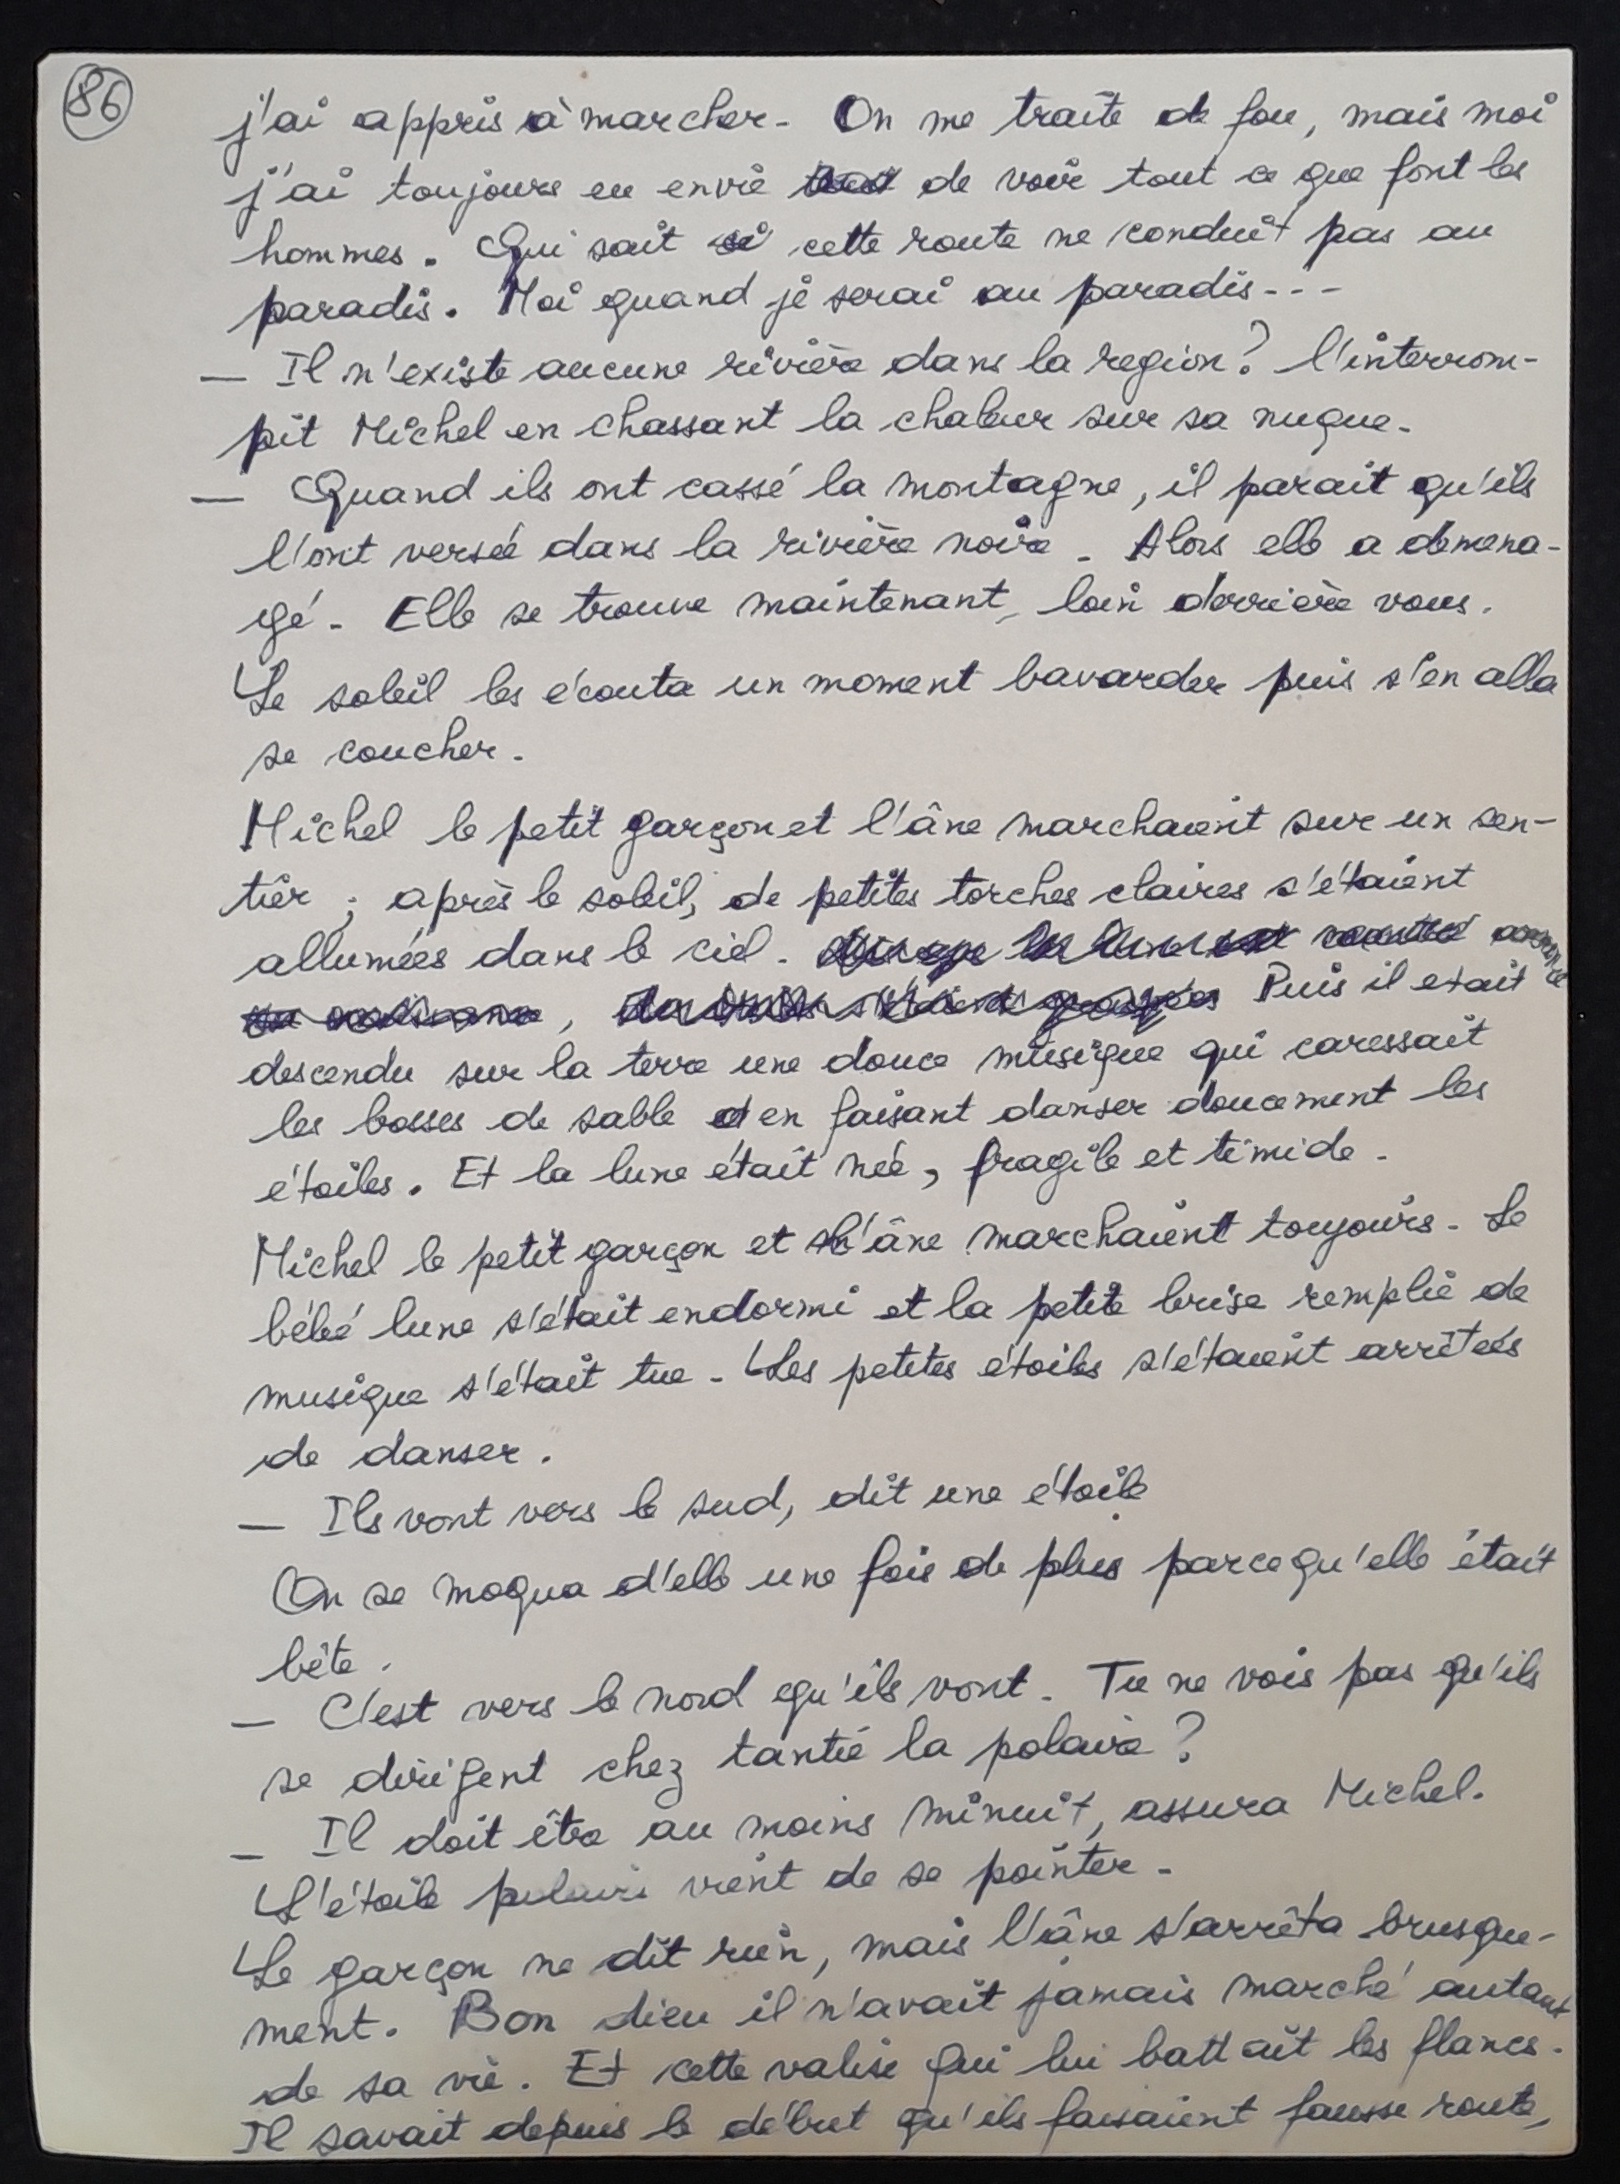 86
j'ai appris à marcher - On me traite de fou, mais moi
j'ai toujours eu envie de voir tout ce que font les
hommes. Qui sait si cette route ne conduit pas au
paradis. Moi quand je serai au paradis - - -
— Il n'existe aucune rivière dans la region ? l'interrom-
pit Michel en chassant la chaleur sur sa nuque -
— Quand ils ont cassé la montagne, il parait qu'ils
l'ont versée dans la rivière noire - Alors elle a demena-
gé - Elle se trouve maintenant, loin derrière vous.
Le soleil les écouta un moment bavarder puis s'en alla
se coucher -
Michel le petit garçon et l'âne marchaient sur un sen-
tier ; après le soleil, de petites torches claires s'étaient
allumées dans le ciel -
Puis il etait
descendu sur la terre une douce musique qui caressait
les bosses de sable en faisant danser doucement les
étoiles. Et la lune était née, fragile et timide -
Michel le petit garçon et l'âne marchaient toujours - Le
bébé lune s'était endormi et la petite brise remplie de
musique s'était tue - Les petites étoiles s'étaient arrêtées
de danser.
— Ils vont vers le sud, dit une étoile
On se moqua d'elle une fois de plus parcequ'elle était
bête.
— C'est vers le nord qu'ils vont - Tu ne vois pas qu'ils
se dirigent chez tantie la polaire ?
— Il doit être au moins minuit, assura Michel.
L'étoile polaire vient de se pointer -
Le garçon ne dit rien, mais l'âne s'arrêta brusque-
ment. Bon dieu il n'avait jamais marché autant
de sa vie. Et cette valise qui lui battait les flancs -
Il savait depuis le début qu'ils faisaient fausse route,